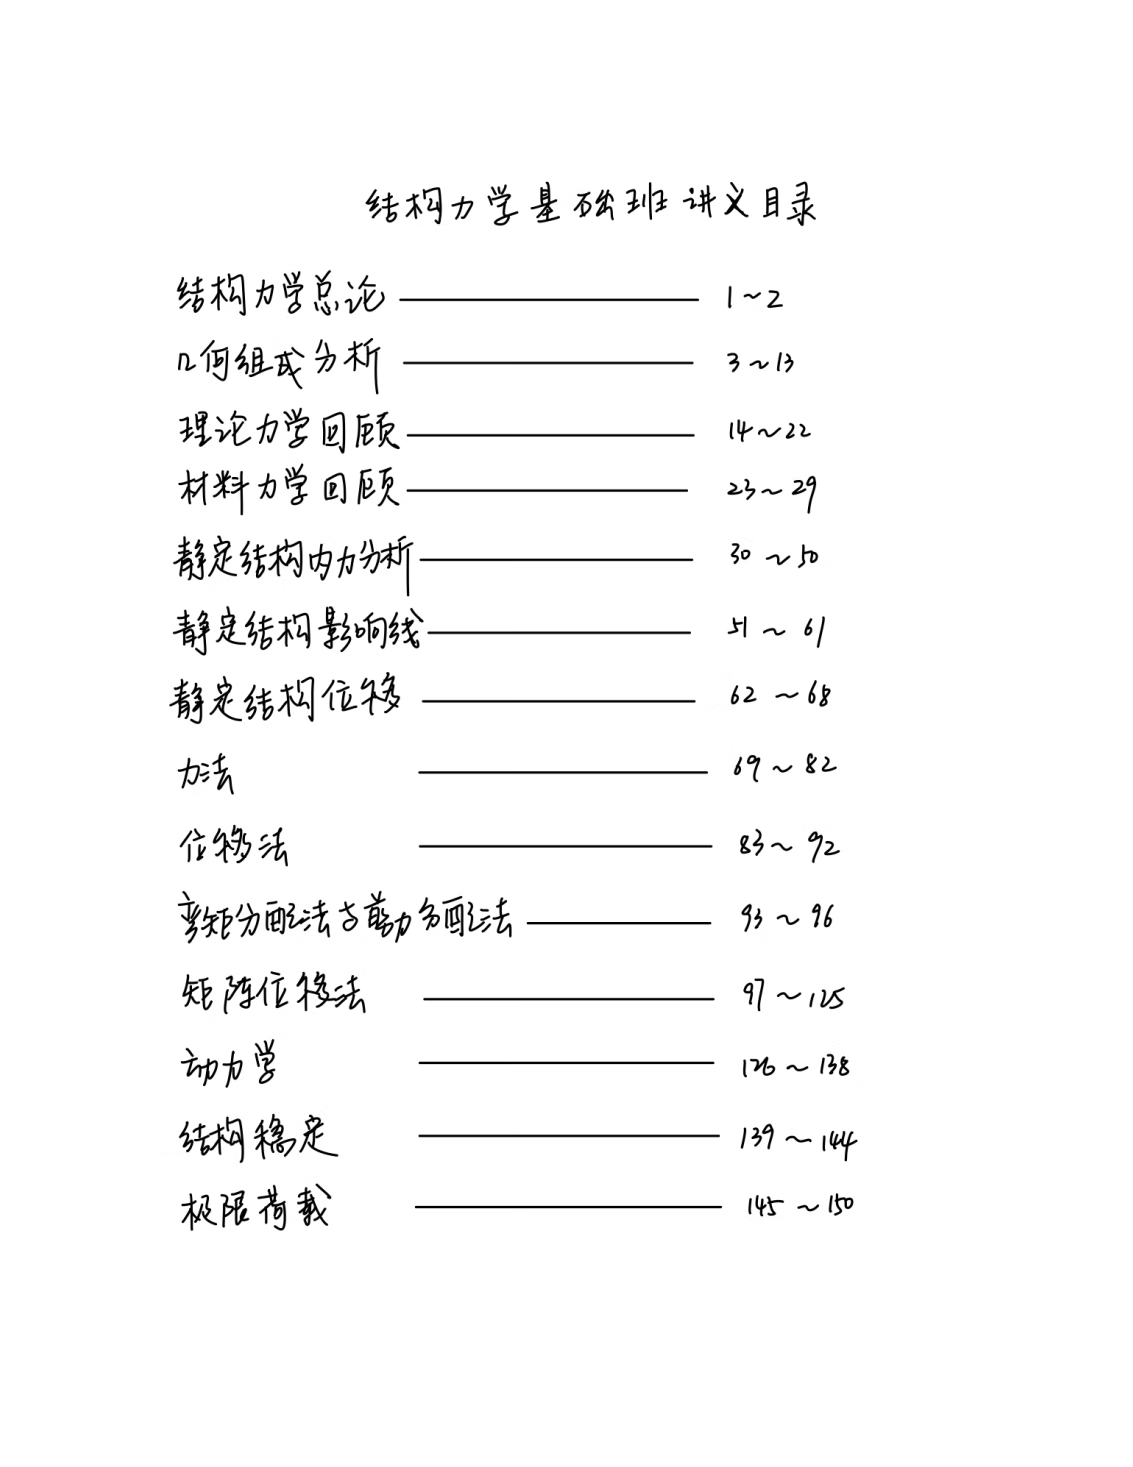 结构力学基础班讲义目录
结构力学总论 —— 1~2
几何组成分析 —— 3~13
理论力学回顾 —— 14~22
材料力学回顾 —— 23~29
静定结构内力分析 —— 30~50
静定结构影响线 —— 51~61
静定结构位移 —— 62~68
力法 —— 69~82
位移法 —— 83~92
弯矩分配法与剪力分配法 —— 93~96
矩阵位移法 —— 97~125
动力学 —— 126~138
结构稳定 —— 139~144
极限荷载 —— 145~150